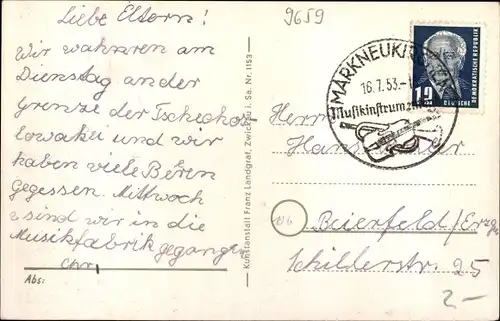 Liebe Eltern!
Wir wahren am
Dienstag an der
Grenze der Tschechos-
lowakei und wir
haben viele Beeren
gegessen. Mittwoch
sind wir in die
Musikfabrik gegangen
Chr.
Abs:
Kunstanstalt Franz Landgraf, Zwickau i. Sa. Nr. 1153
9659
MARKNEUKIRCHEN
16.7.53.-
Musikinstrumen
12
DEUTSCHE DEMOKRATISCHE REPUBLIK
Herrn
Hans
10b Beierfeld/Erzg.
Schilderstr. 25
2-